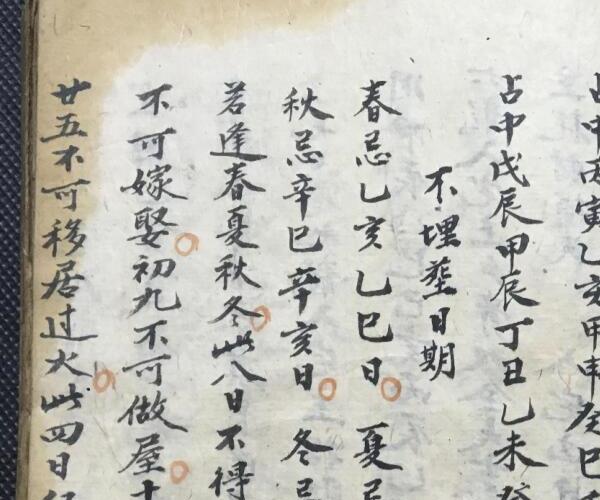 占中丙寅乙亥甲申癸巳
占中戊辰甲辰丁丑乙未
不埋葬日期
春忌乙亥乙巳日夏忌
秋忌辛巳辛亥日冬忌
若逢春夏秋冬此八日不得
不可嫁娶初九不可做屋十
廿五不可移居过火此四日